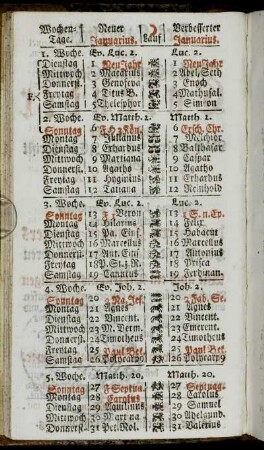 Wochen- Neuer Verbesserter
Tage. Januarius. lauf Januarius.
1. Woche. Ev. Luc. 2. Luc. 2.
Dienstag 1 Neu Jahr 1 Neu Jahr
Mittwoch 2 Macarius 2 Abel, Seth
Donnerst. 3 Genofeva 3 Enoch
Freytag 4 Titus B. 4 Methusal.
Samstag 5 Thelesphor 5 Simeon
2. Woche. Ev. Matth. 2. Matth. 2.
Sonntag 6 6 Ersch. Chr.
Montag 7 Julianus 7 Melchior
Dienstag 8 Erhardus 8 Balthasar
Mittwoch 9 Martiana 9 Caspar
Donnerst. 10 Agatho 10 Agatho
Freytag 11 Hyginius 11 Erhardus
Samstag 12 Tatiana 12 Reinhold
3. Woche. Ev. Luc. 2. Luc. 2.
Sonntag 13 F 1 Veron 13 1 S. n. Ep.
Montag 14 Hilarius 14 Felix
Dienstag 15 Pa. Einf. 15 Habacuc
Mittwoch 16 Marcellus 16 Marcellus
Donnerst. 17 Ant. Eins. 17 Antonius
Freytag 18 P. St. z. R. 18 Prisca
Samstag 19 Canutus 19 Ferdinan.
4. Woche. Ev. Joh. 2. Joh. 2.
Sonntag 20 2 Na. Jes. 20 2 Fab. Se.
Montag 21 Agnes 21 Agnes
Dienstag 22 Vincent. 22 Vincent.
Mittwoch 23 M. Verm. 23 Emerent.
Donnerst. 24 Timotheus 24 Timotheus
Freytag 25 Paul Bek. 25 Paul Bek.
Samstag 26 Polycarp 26 Polycarp
5. Woche. Matth. 20. Matth. 20.
Sonntag 27 F Septua. 27 Septuag.
Montag 28 Carolus 28 Carolus
Dienstag 29 Aquilinus 29 Samuel
Mittwoch 30 Martina 30 Adelgund
Donnerst. 31 Pet. Nol. 31 Valerius